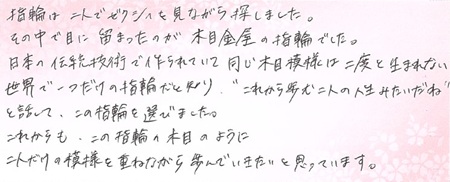 指輪は二人でゼクシィを見ながら探しました。
その中で目に留まったのが木目金屋の指輪でした。
日本の伝統技術で作られていて同じ木目模様は二度と生まれない
世界で一つだけの指輪だと知り、"これから歩む二人の人生みたいだね"
と話して、この指輪を選びました。
これからも、この指輪の木目のように
二人だけの模様を重ねながら歩んでいきたいと思っています。